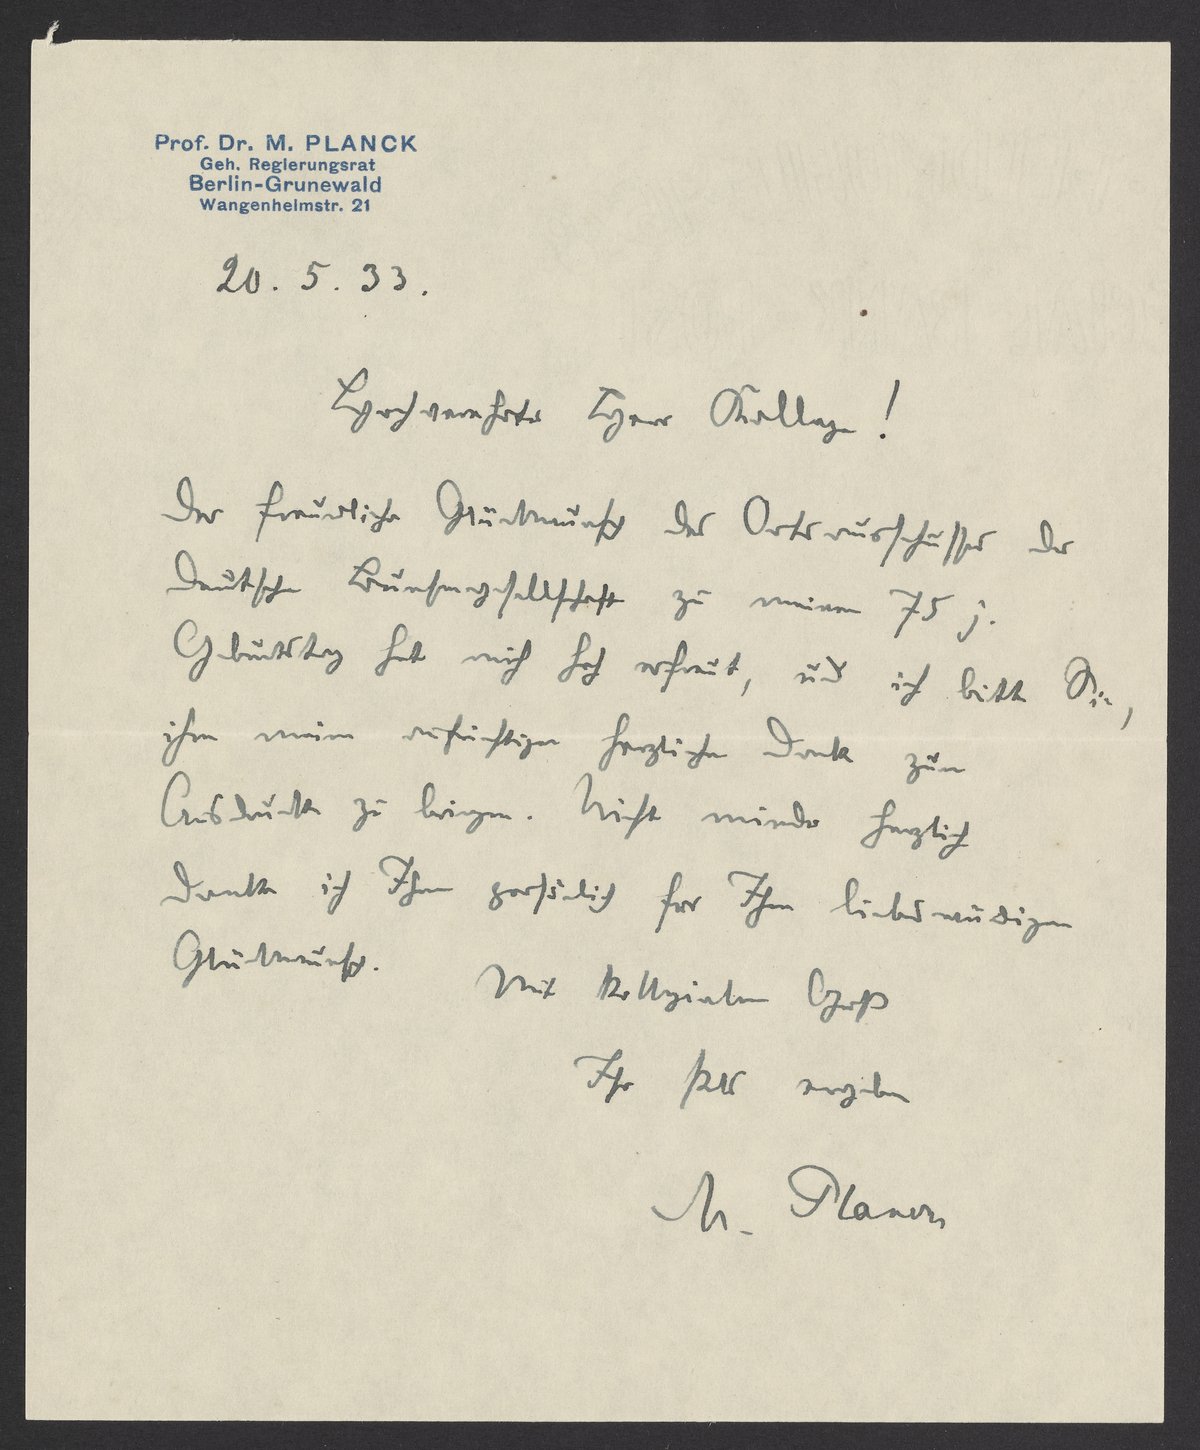 Prof. Dr. M. PLANCK
Geh. Regierungsrat
Berlin-Grunewald
Wangenheimstr. 21
20. 5. 33.
Hochverehrter Herr Kollege!
Der freundliche Glückwunsch des Ortsausschusses der
Deutschen Bunsengesellschaft zu meinem 75 j.
Geburtstag hat mich hoch erfreut, und ich bitte Sie,
ihm meinen aufrichtigen herzlichen Dank zum
Ausdruck zu bringen. Nicht minder herzlich
danke ich Ihnen persönlich für Ihren liebenswürdigen
Glückwunsch.
Mit kollegialem Gruß
Ihr stets ergebener
M. Planck